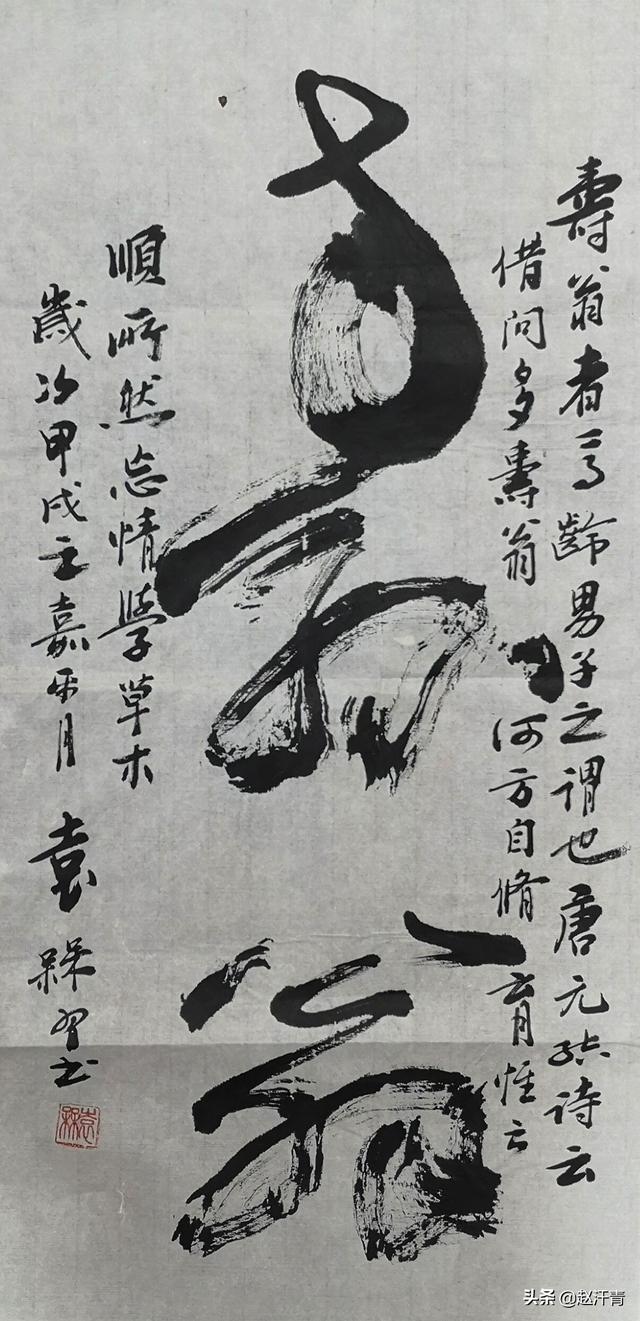 壽翁者高齡男子之謂也唐元结诗云
借问多壽翁何方自脩育惟云
壽翁
順所然忘情學草木
歲次甲戌之嘉平月袁槑習书
袁槑
头条 @赵汗青